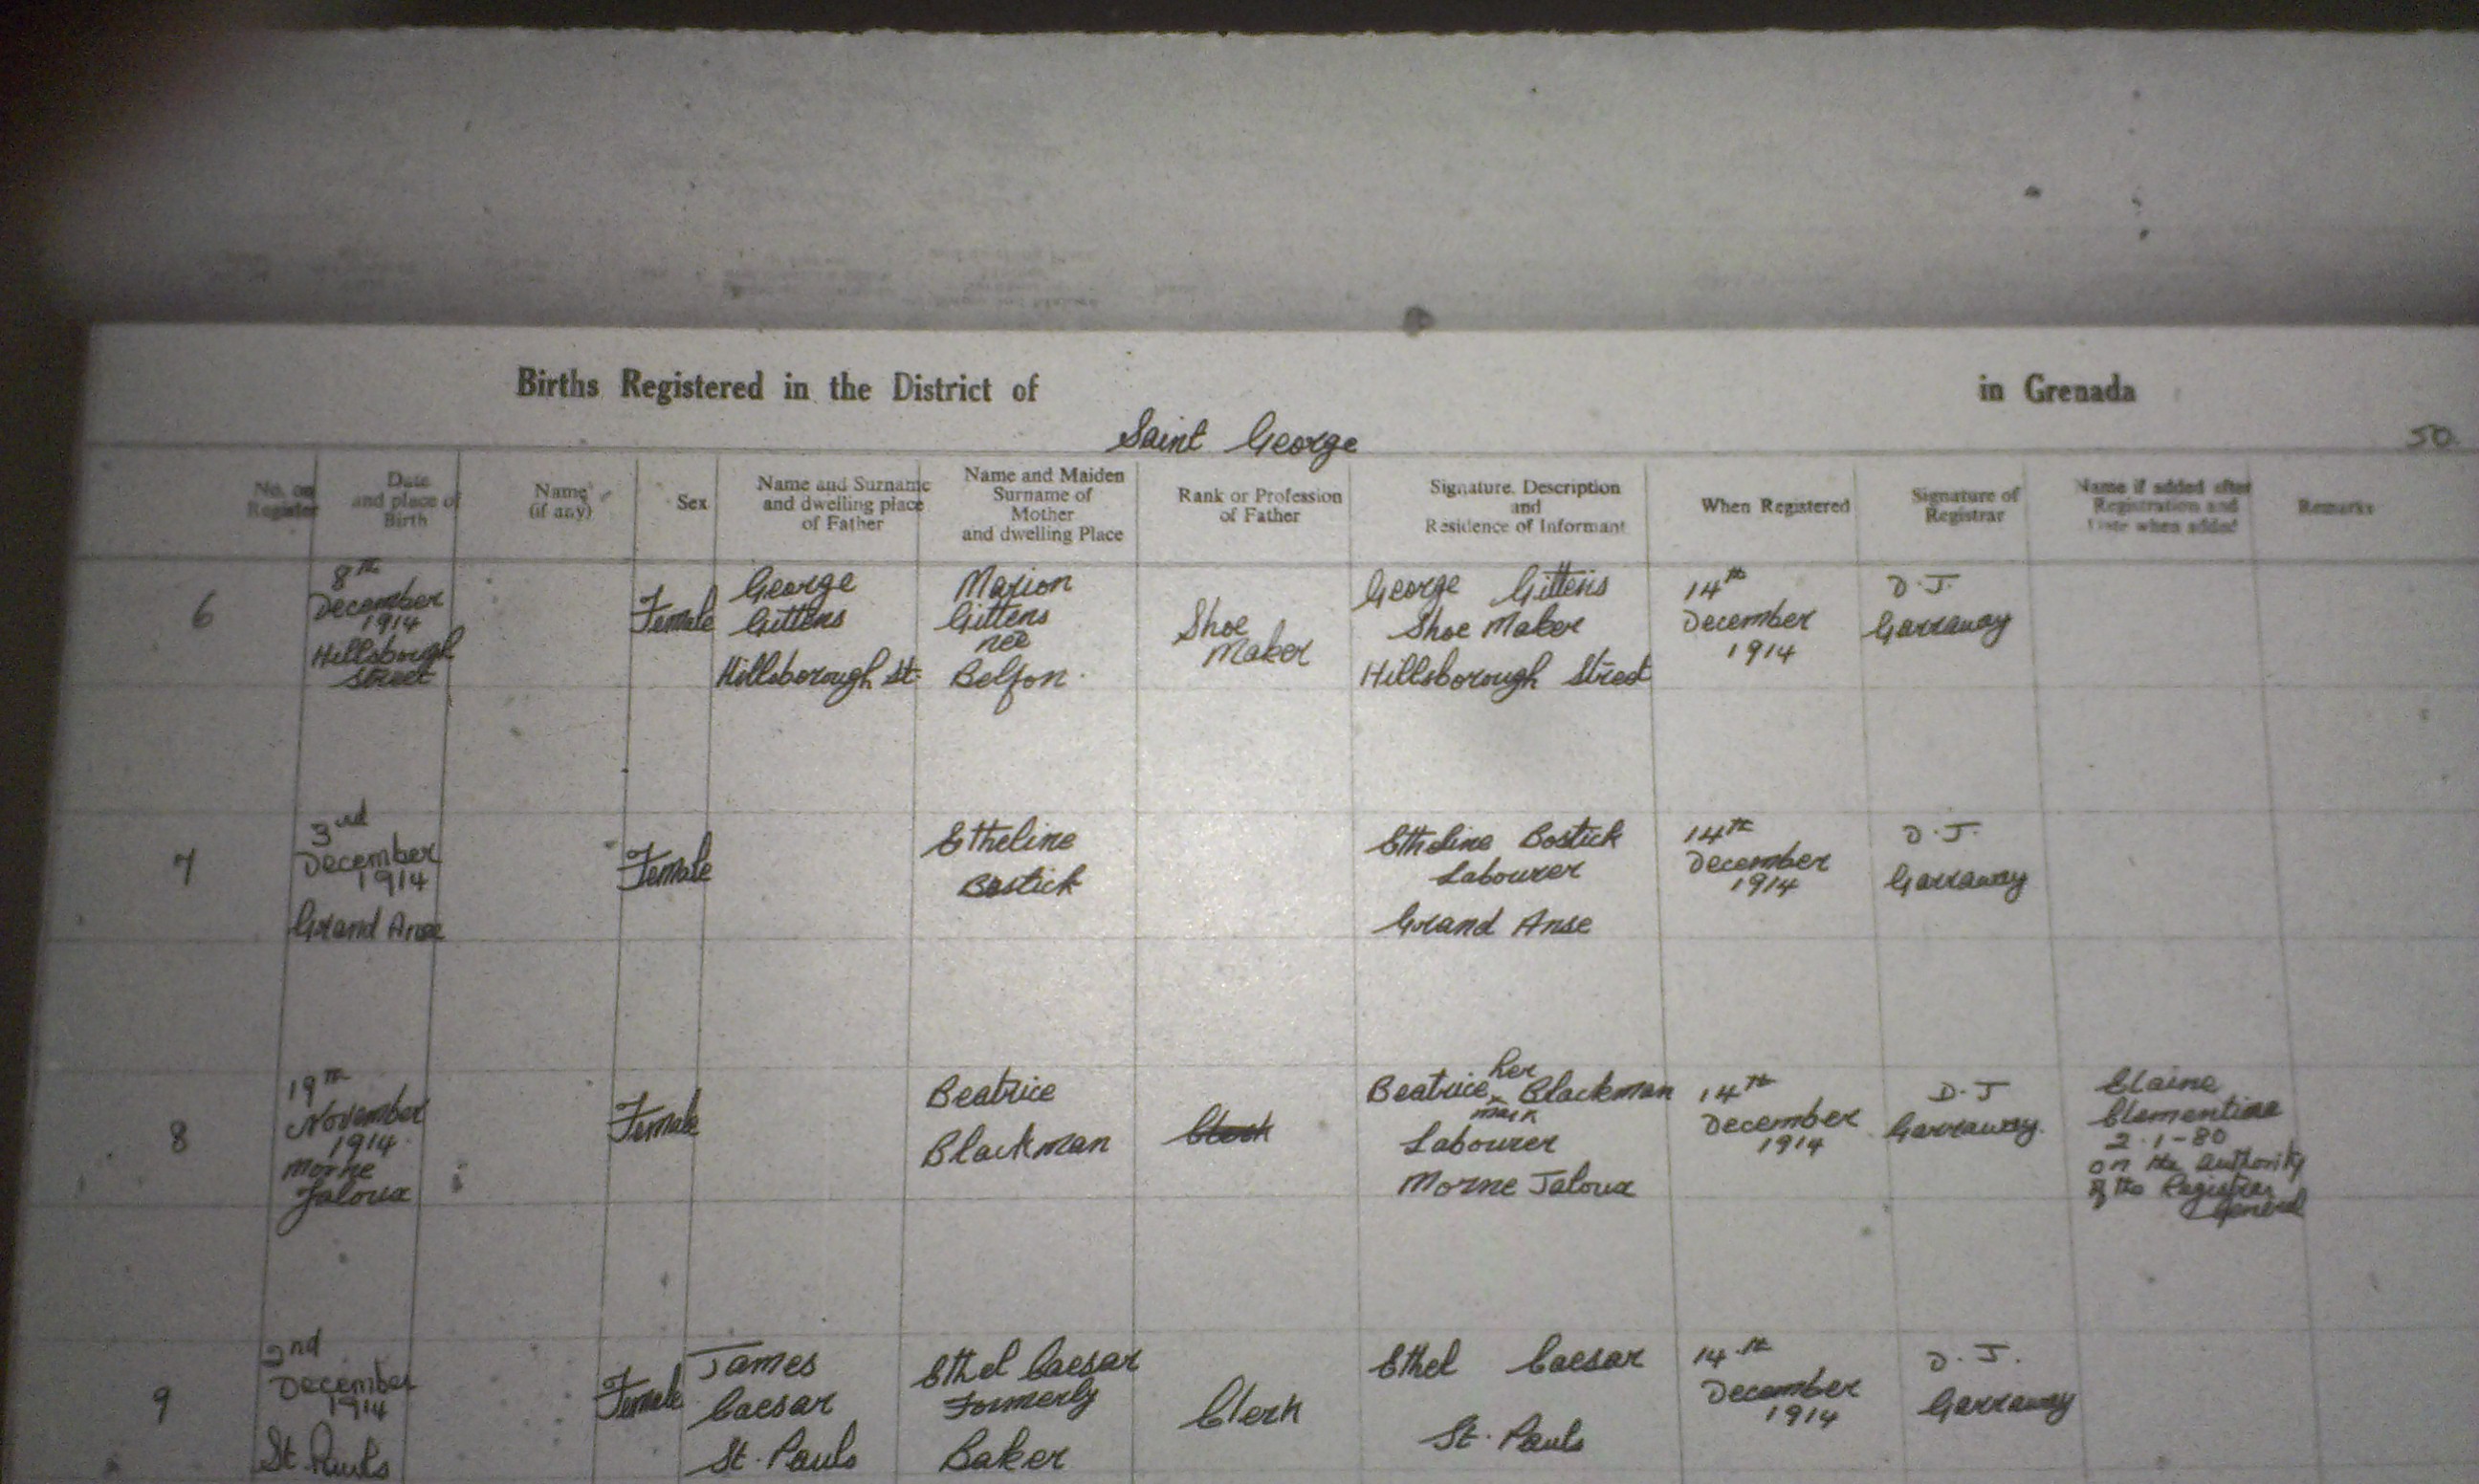 Births Registered in the District of
in Grenada
Saint George
50
No. on
Register
Date
and place of
Birth
Name
(if any)
Sex
Name and Surname
and dwelling place
of Father
Name and Maiden
Surname of
Mother
and dwelling Place
Rank or Profession
of Father
Signature, Description
and
Residence of Informant
When Registered
Signature of
Registrar
Name if added after
Registration and
Date when added
Remarks
6
8th
December
1914
Hillsborough
Street
Female
George
Gittens
Hillsborough St.
Marion
Gittens
nee
Belfon
Shoe
Maker
George Gittens
Shoe Maker
Hillsborough Street
14th
December
1914
D. J.
Garraway
7
3rd
December
1914
Grand Anse
Female
Etheline
Bostick
Etheline Bostick
Labourer
Grand Anse
14th
December
1914
D. J.
Garraway
8
19th
November
1914
Morne
Jaloux
Female
Beatrice
Blackman
Clerk
her
Beatrice x Blackman
mark
Labourer
Morne Jaloux
14th
December
1914
D. J
Garraway.
Elaine
Clementina
2-1-80
on the authority
of the Registrar
General
9
2nd
December
1914
St. Pauls
Female
James
Caesar
St. Pauls
Ethel Caesar
Formerly
Baker
Clerk
Ethel Caesar
St. Pauls
14th
December
1914
D. J.
Garraway